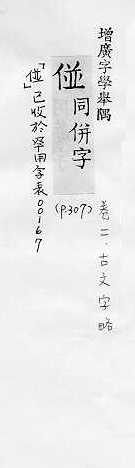 增廣字學舉隅
卷二.古文字略
偋同併字
(P.307)
「偋」已收於罕用字表00167